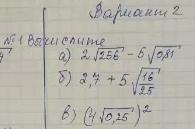 Вариант 2
№1 Вычислите
а) 2√256 - 5√0,81
б) 2,7 + 5√16/25
в) (4√0,25)²